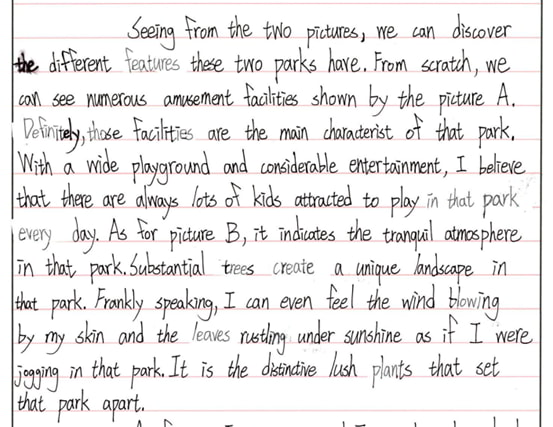 Seeing from the two pictures, we can discover
the different features these two parks have. From scratch, we
can see numerous amusement facilities shown by the picture A.
Definitely, those facilities are the main characterist of that park.
With a wide playground and considerable entertainment, I believe
that there are always lots of kids attracted to play in that park
every day. As for picture B, it indicates the tranquil atmosphere
in that park. Substantial trees create a unique landscape in
that park. Frankly speaking, I can even feel the wind blowing
by my skin and the leaves rustling under sunshine as if I were
jogging in that park. It is the distinctive lush plants that set
that park apart.